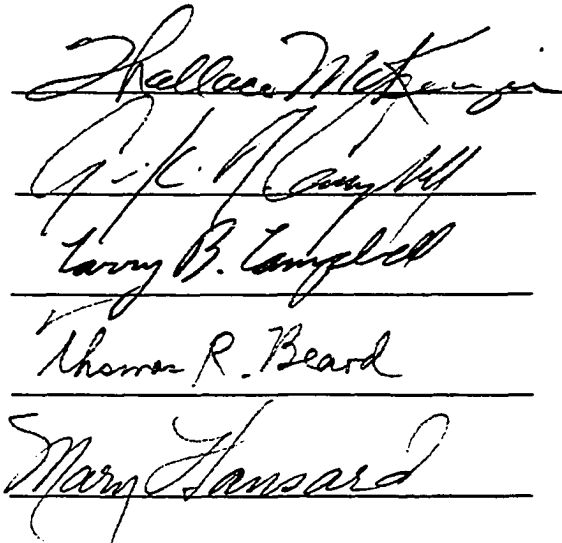 Wallace McKenzie
Campbell
Larry B. Campbell
Thomas R. Beard
Mary Hansard